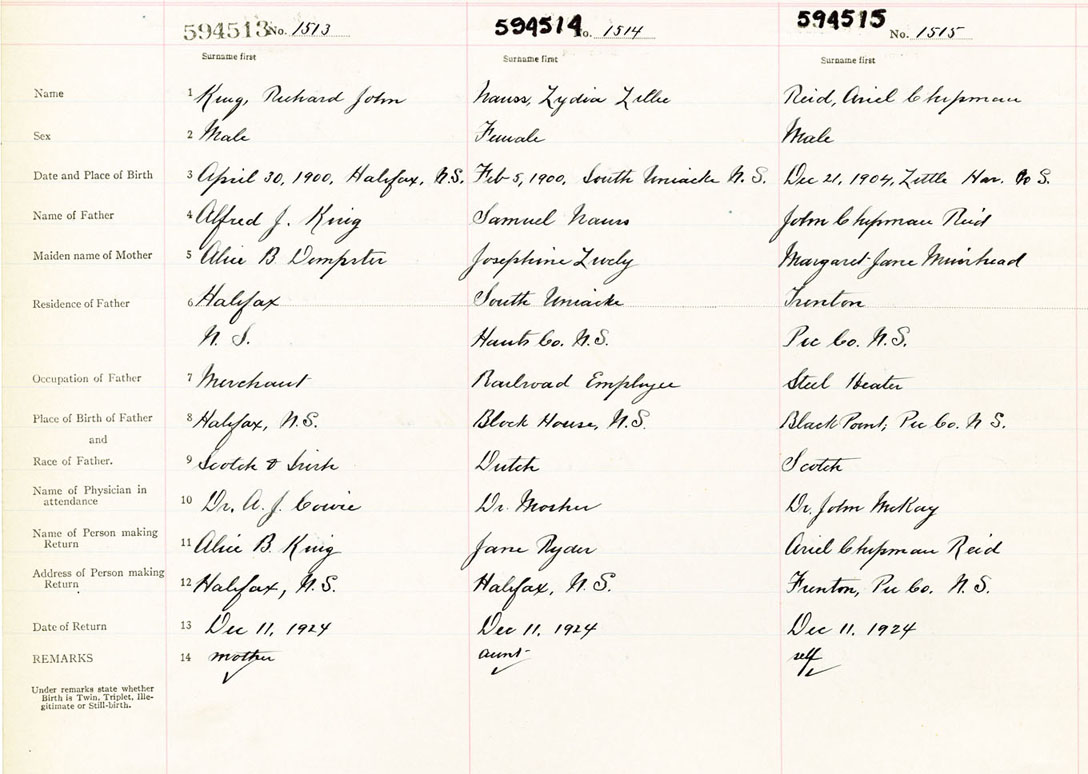 594513 No. 1513 594514 No. 1514 594515 No. 1515
Surname first Surname first Surname first
Name 1 King, Richard John Nauss, Lydia Lillie Reid, Ariel Chipman
Sex 2 Male Female Male
Date and Place of Birth 3 April 30, 1900, Halifax, N.S. Feb 5, 1900, South Uniacke N.S. Dec 21, 1904, Little Har. N S.
Name of Father 4 Alfred J. King Samuel Nauss John Chipman Reid
Maiden name of Mother 5 Alice B Dempster Josephine Lively Margaret Jane Muirhead
Residence of Father 6 Halifax South Uniacke Trenton
N. S. Hants Co. N.S. Pic Co. N.S.
Occupation of Father 7 Merchant Railroad Employee Steel Heater
Place of Birth of Father 8 Halifax, N.S. Block House, N.S. Black Point, Pic Co. N S.
and
Race of Father. 9 Scotch & Irish Dutch Scotch
Name of Physician in
attendance 10 Dr. A. J. Cowie Dr. Mosher Dr. John McKay
Name of Person making
Return 11 Alice B. King Jane Ryder Ariel Chipman Reid
Address of Person making
Return 12 Halifax, N.S. Halifax, N.S. Trenton, Pic Co. N.S.
Date of Return 13 Dec 11, 1924 Dec 11, 1924 Dec 11. 1924
REMARKS 14 mother aunt self
Under remarks state whether
Birth is Twin, Triplet, Ille-
gitimate or Still-birth.